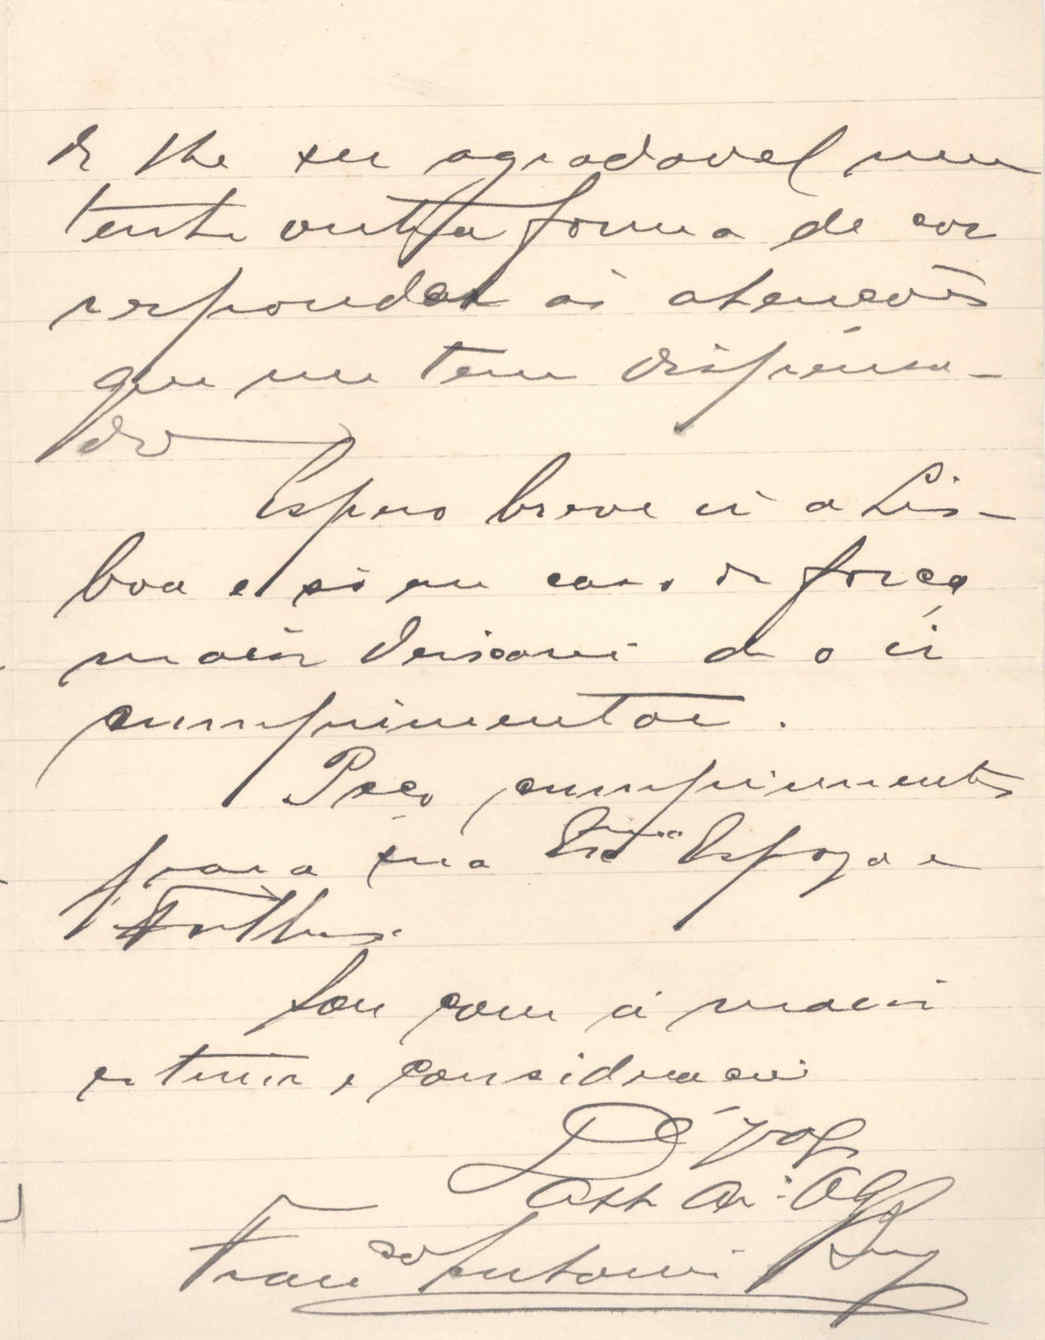 de lhe ser agradavel nem
tente outra forma de cor
responder ás atenções
que me tem dispensa-
do
Espero breve ir a Lis-
boa e só em caso de força
maior deixarei de o ir
cumprimentar.
Peço cumprimentos
para sua Exma Espoza e
Filhos.
Sou com a maior
estima e consideração
De V.
Att Am: Obg
Franco Antonio